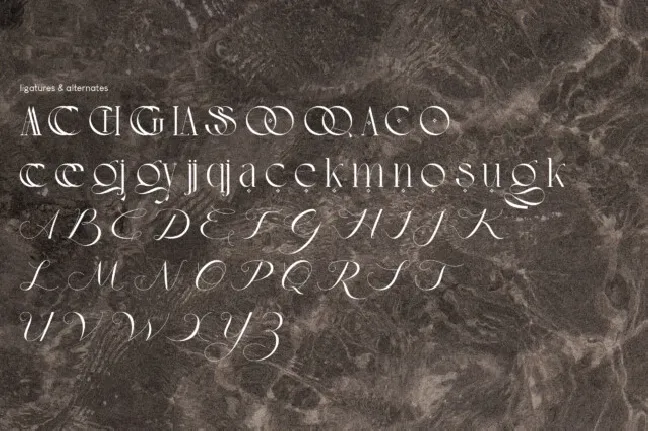 ligatures & alternates
A C CH GI IA S OO OQ A C O
c ce gj gy jj qj a c c e k m n o s u g k
A B C D E F G H I J K
L M N O P Q R S T
U V W X Y Z